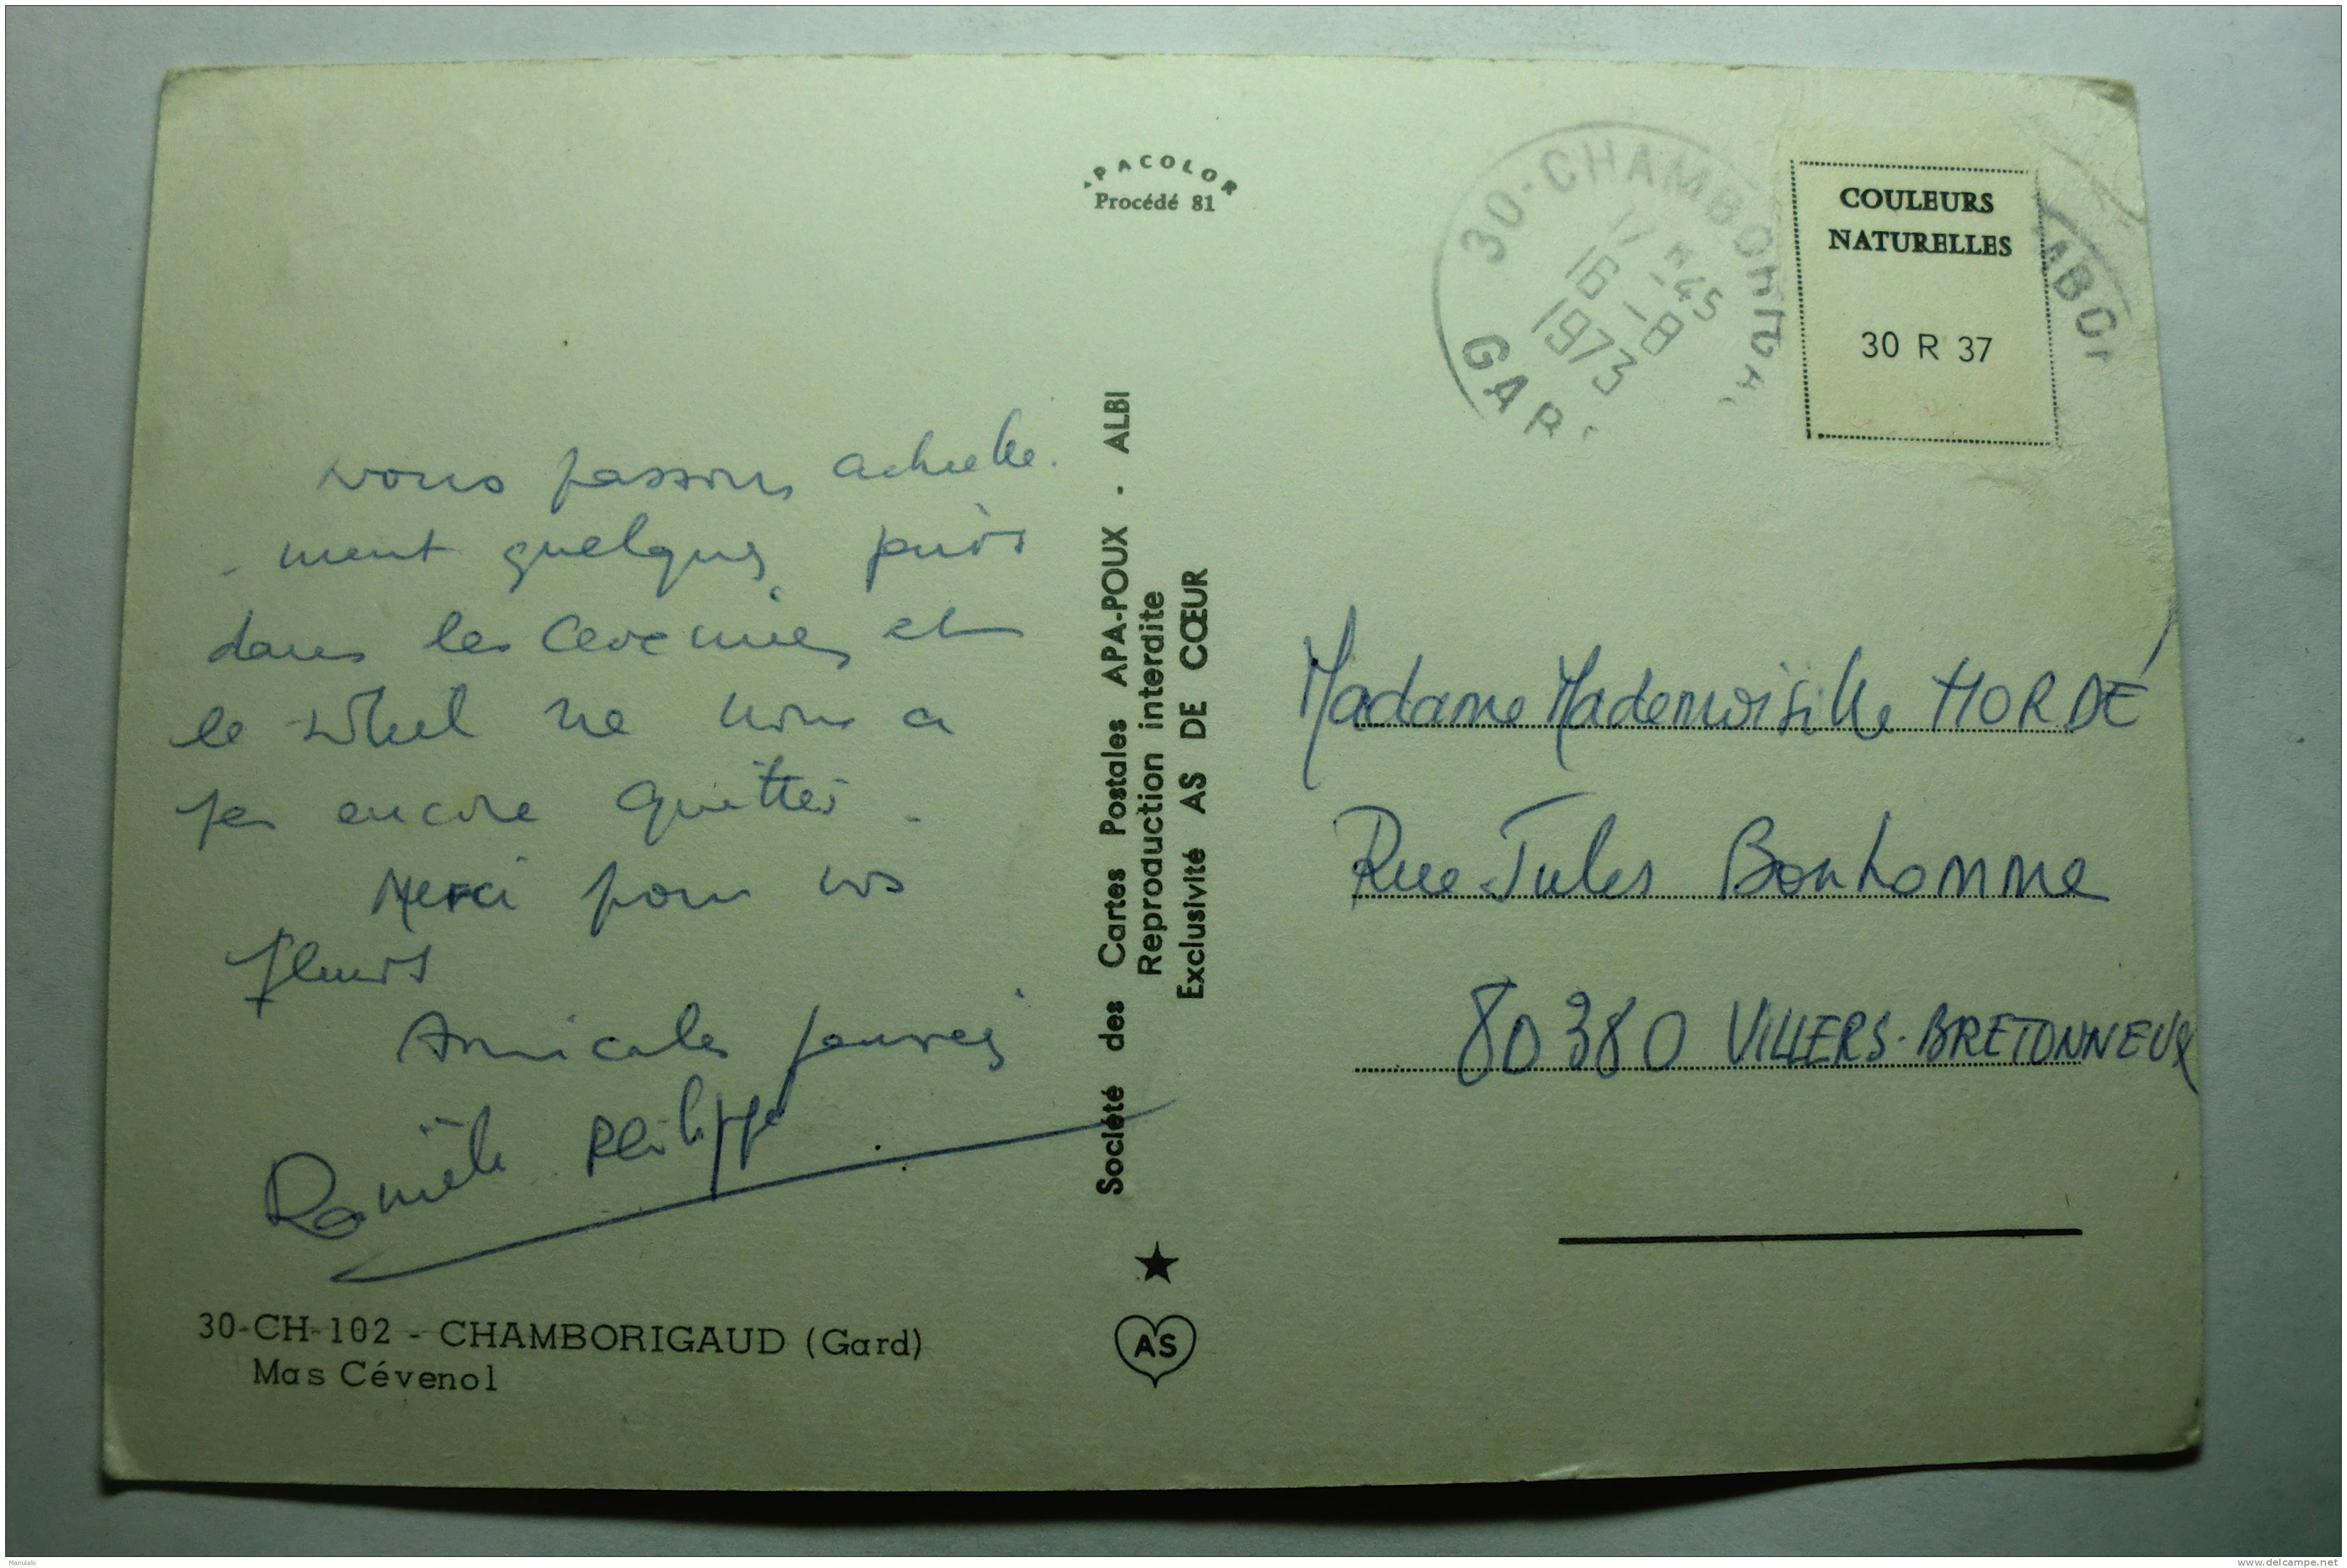 APACOLOR
Procédé 81
nous passons actuelle-
- ment quelques jours
dans les Cevennes et
le soleil ne nous a
pas encore quittés.
Merci pour vos
fleurs
Amicales pensées
Philippe
30-CH-102 - CHAMBORIGAUD (Gard)
Mas Cévenol
Société des Cartes Postales APA-POUX - ALBI
Reproduction interdite
Exclusivité AS DE CŒUR
AS
30-CHAMBORIGA
17 H -45
16 -8
1973
GAR
COULEURS
NATURELLES
30 R 37
MBO
Madame Mademoiselle HORDÉ
Rue Jules Bonhomme
80380 VILLERS-BRETONNEUX
Manulalo
www.delcampe.net